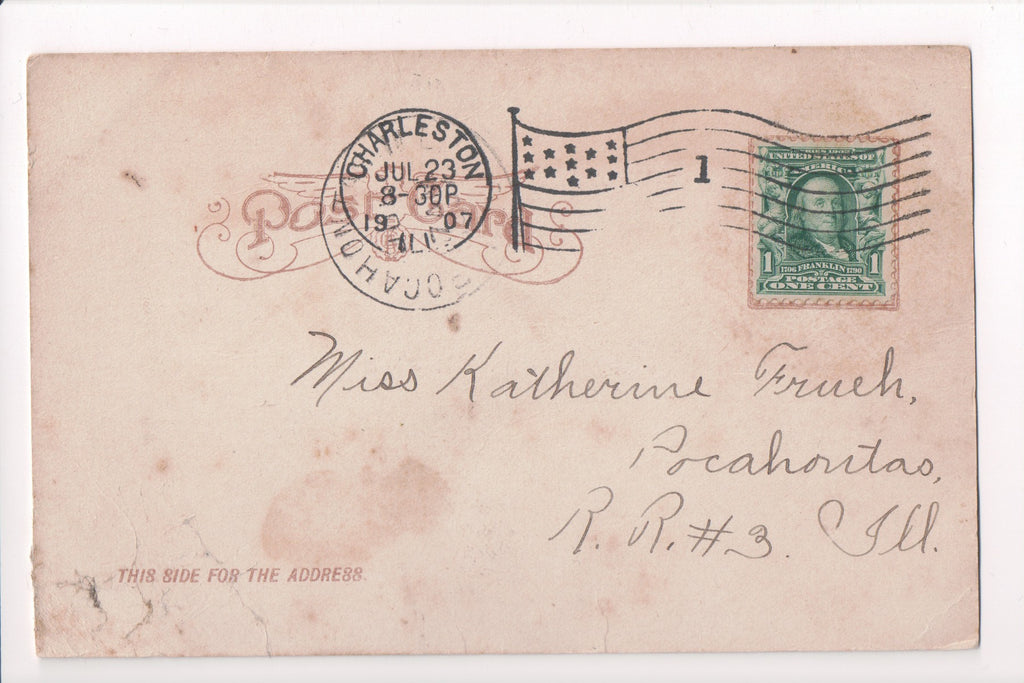 CHARLESTON
JUL 23
8-30P
1907
ILL.
POCAHON
1
Post Card
SERIES 1902
UNITED STATES OF
AMERICA
1 1706 FRANKLIN 1790 1
POSTAGE
ONE CENT
Miss Katherine Frueh,
Pocahontas,
R. R. #3. Ill.
THIS SIDE FOR THE ADDRESS.